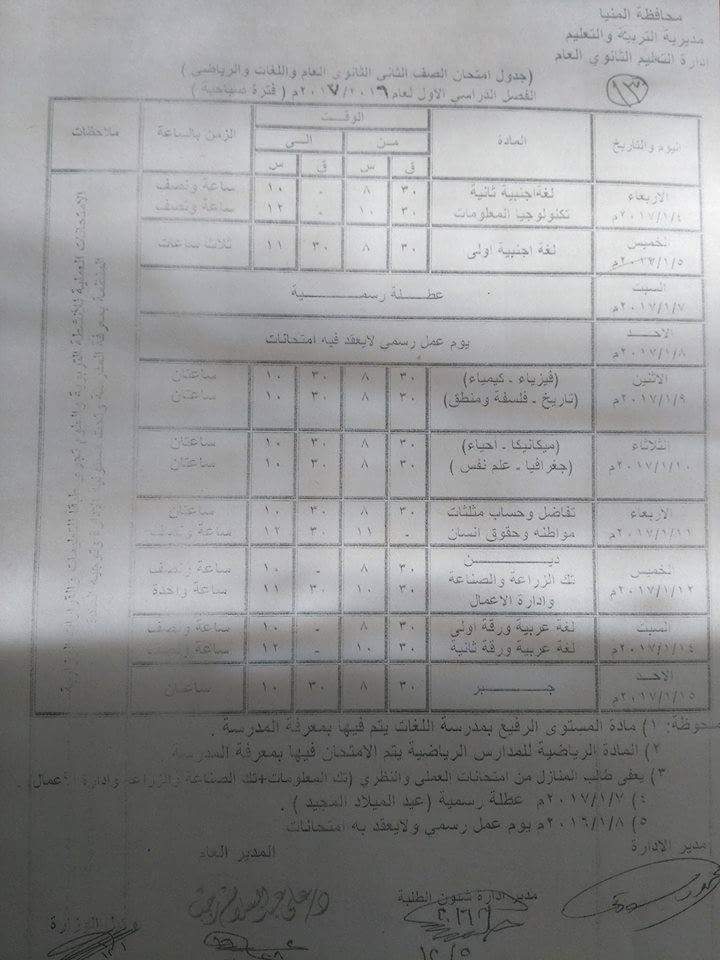 محافظة المنيا
مديرية التربية والتعليم
ادارة التعليم الثانوى العام
١٣
(جدول امتحان الصف الثانى الثانوى العام واللغات والرياضى)
الفصل الدراسي الاول لعام ٢٠١٧/٢٠١٦م (فترة صباحية)
اليوم والتاريخ المادة الوقت الزمن بالساعة ملاحظات
من الى
ق س ق س
الاربعاء لغة اجنبية ثانية ٣٠ ٨ - ١٠ ساعة ونصف
٢٠١٧/١/٤م تكنولوجيا المعلومات ٣٠ ١٠ - ١٢ ساعة ونصف
الخميس لغة اجنبية اولى ٣٠ ٨ ٣٠ ١١ ثلاث ساعات
السبت عطلة رسمية
٢٠١٧/١/٧م
الاحد يوم عمل رسمى لايعقد فيه امتحانات
٢٠١٧/١/٨م
الاثنين (فيزياء - كيمياء) ٣٠ ٨ ٣٠ ١٠ ساعتان
٢٠١٧/١/٩م (تاريخ - فلسفة ومنطق) ٣٠ ٨ ٣٠ ١٠ ساعتان
الثلاثاء (ميكانيكا - احياء) ٣٠ ٨ ٣٠ ١٠ ساعتان
٢٠١٧/١/١٠م (جغرافيا - علم نفس) ٣٠ ٨ ٣٠ ١٠ ساعتان
الاربعاء تفاضل وحساب مثلثات ٣٠ ٨ ٣٠ ١٠ ساعتان
٢٠١٧/١/١١م مواطنه وحقوق انسان - ١١ ٣٠ ١٢ ساعة ونصف
الخميس ديـن ٣٠ ٨ - ١٠ ساعة ونصف
٢٠١٧/١/١٢م تك الزراعة والصناعة ٣٠ ١٠ ٣٠ ١١ ساعة واحدة
وادارة الاعمال
السبت لغة عربية ورقة اولى ٣٠ ٨ - ١٠ ساعة ونصف
٢٠١٧/١/١٤م لغة عربية ورقة ثانية ٣٠ ١٠ - ١٢ ساعة ونصف
الاحد جـبر ٣٠ ٨ ٣٠ ١٠ ساعتان
٢٠١٧/١/١٥م
ملحوظة: ١) مادة المستوى الرفيع بمدرسة اللغات يتم فيها بمعرفة المدرسة .
٢) المادة الرياضية للمدارس الرياضية يتم الامتحان فيها بمعرفة المدرسة
٣) يعفى طالب المنازل من امتحانات العملى والنظري (تك المعلومات+تك الصناعة والزراعة وادارة الاعمال) .
٤) ٢٠١٧/١/٧م عطلة رسمية (عيد الميلاد المجيد) .
٥) ٢٠١٦/١/٨م يوم عمل رسمى ولايعقد به امتحانات
مدير الادارة المدير العام
مدير ادارة شئون الطلبة